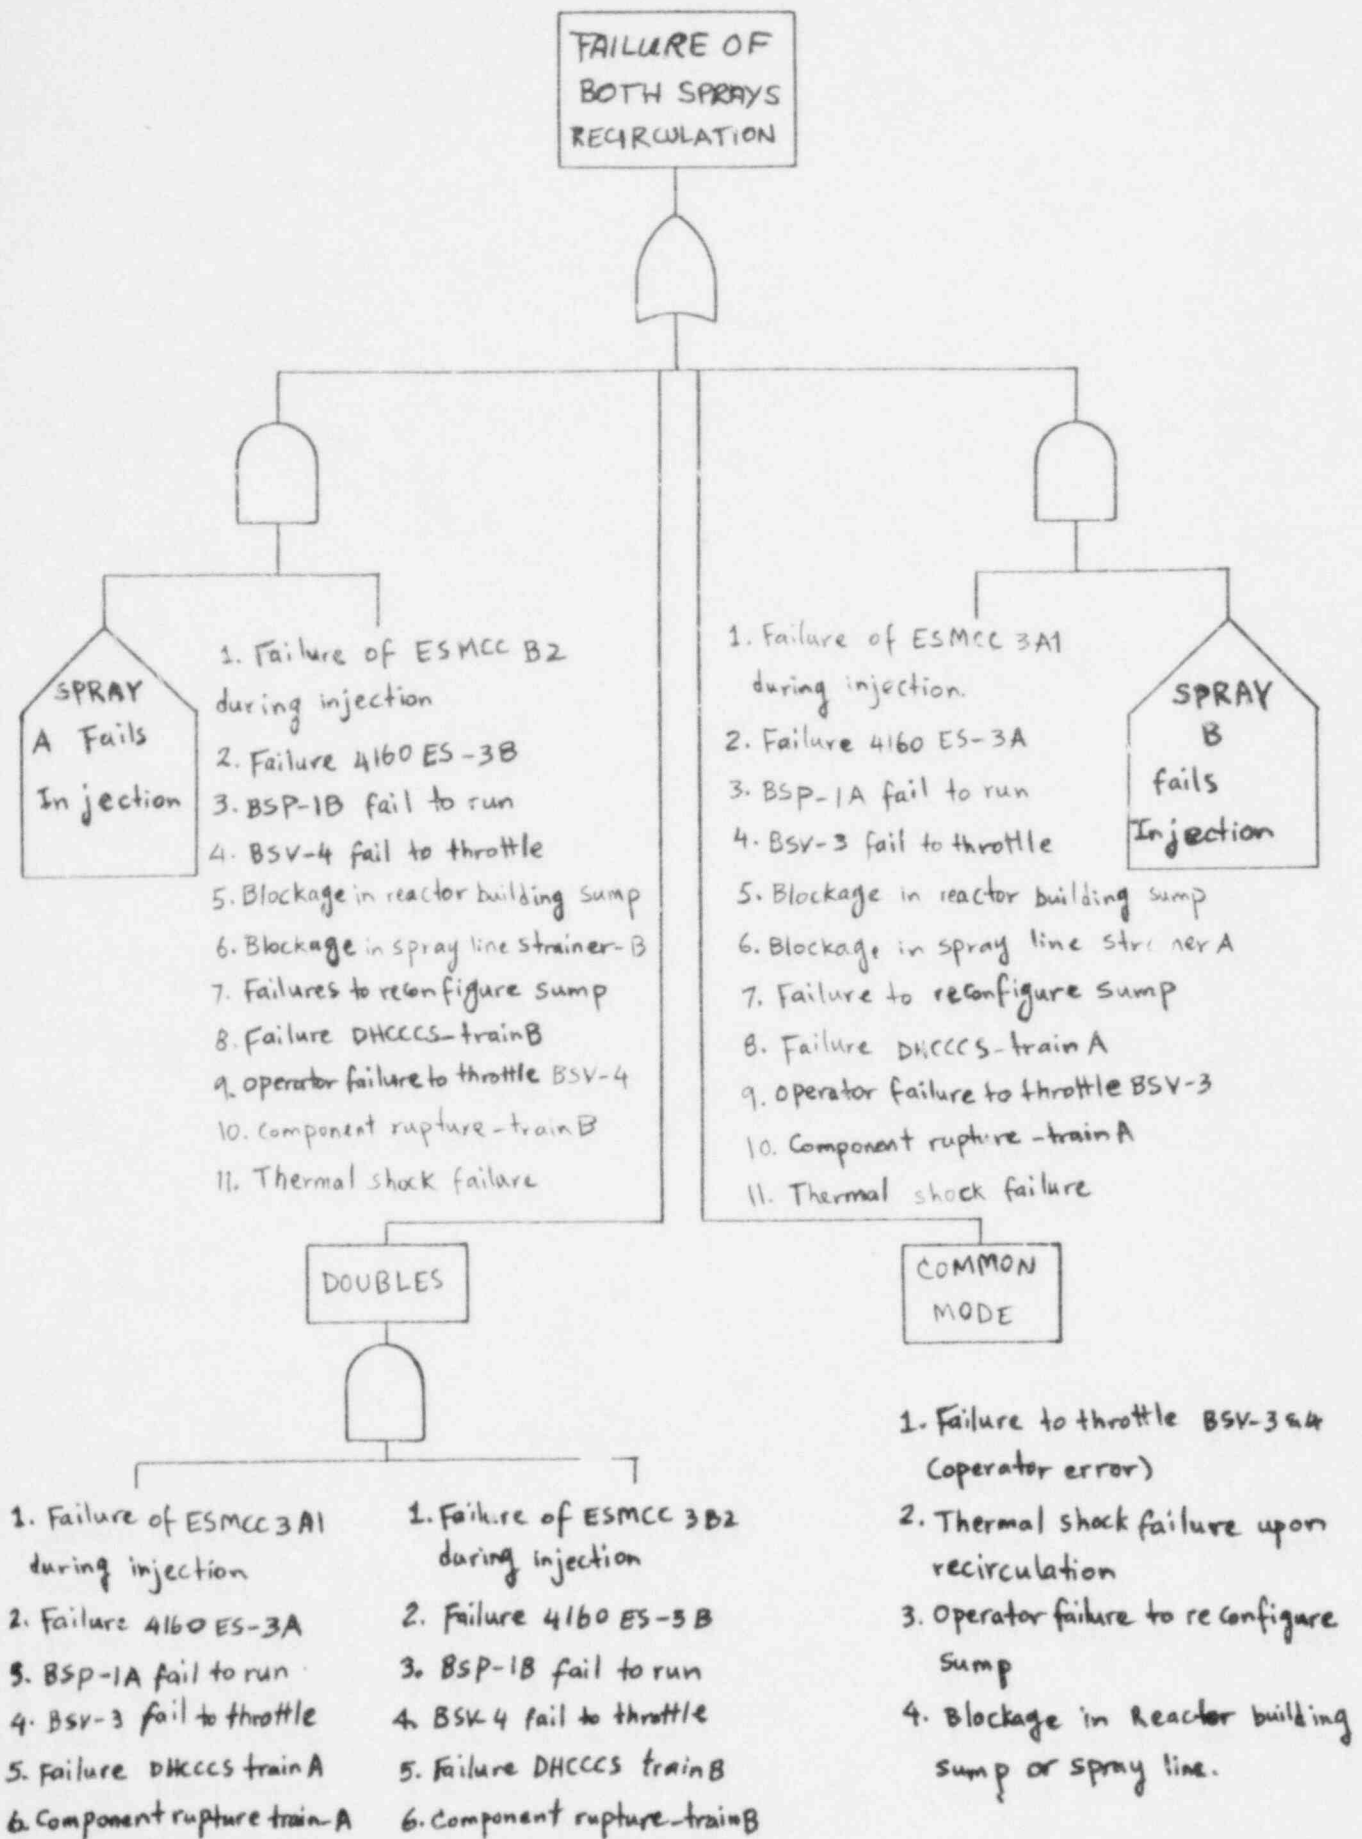 FAILURE OF
BOTH SPRAYS
RECIRCULATION
SPRAY
A Fails
Injection
1. Failure of ESMCC B2
during injection
2. Failure 4160 ES-3B
3. BSP-1B fail to run
4. BSV-4 fail to throttle
5. Blockage in reactor building sump
6. Blockage in spray line strainer-B
7. Failures to reconfigure sump
8. Failure DHCCCS-train B
9. operator failure to throttle BSV-4
10. Component rupture-train B
11. Thermal shock failure
1. Failure of ESMCC 3A1
during injection.
2. Failure 4160 ES-3A
3. BSP-1A fail to run
4. BSV-3 fail to throttle
5. Blockage in reactor building sump
6. Blockage in spray line A
7. Failure to reconfigure sump
8. Failure DHCCCS-train A
9. operator failure to throttle BSV-3
10. Component rupture-train A
11. Thermal shock failure
SPRAY
B
fails
Injection
DOUBLES
COMMON
MODE
1. Failure of ESMCC 3A1
during injection
2. Failure 4160 ES-3A
3. BSP-1A fail to run
4. BSV-3 fail to throttle
5. Failure DHCCCS train A
6. Component rupture train-A
1. Failure of ESMCC 3B2
during injection
2. Failure 4160 ES-3B
3. BSP-1B fail to run
4. BSV-4 fail to throttle
5. Failure DHCCCS train B
6. Component rupture-train B
1. Failure to throttle BSV-3 & 4
(operator error)
2. Thermal shock failure upon
recirculation
3. Operator failure to reconfigure
sump
4. Blockage in Reactor building
sump or spray line.